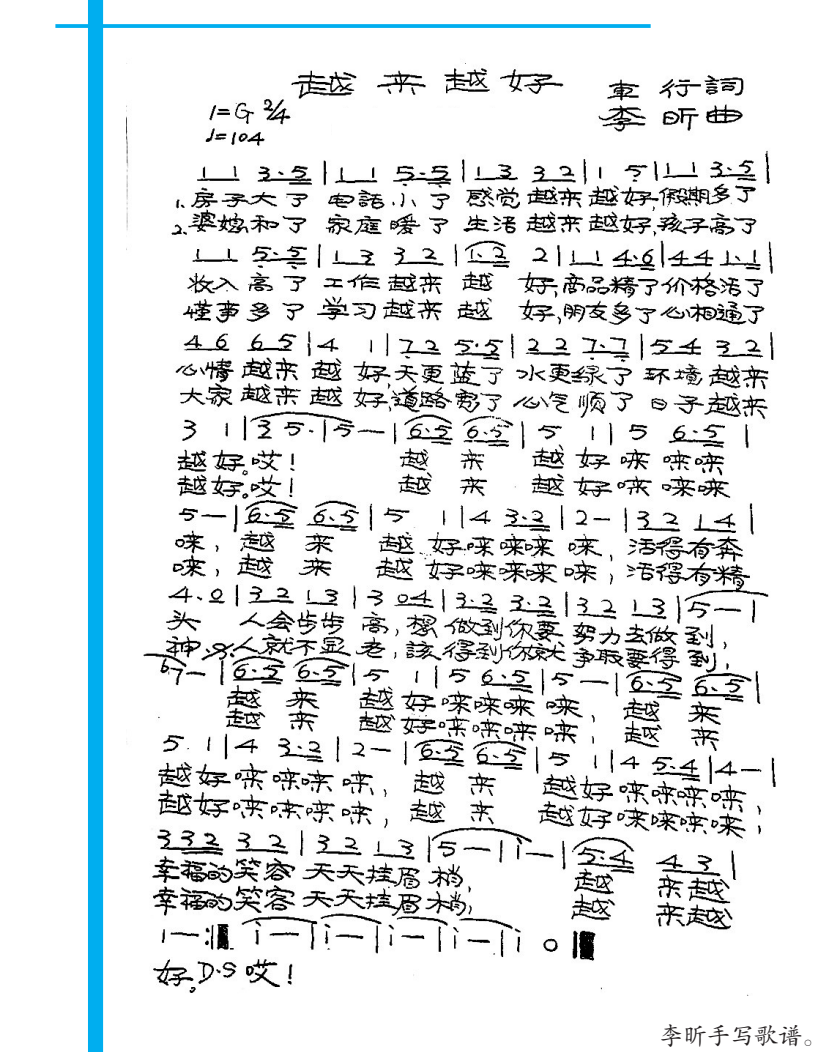 越来越好
車行詞
1=G 2/4
李昕曲
♩=104
1 1 3·5 | 1 1 5·5 | 1 3 3 2 | 1 5 | 1 1 3·5 |
1.房子大了 电話小了 感觉越来越好,假期多了
2.婆媳和了 家庭暖了 生活越来越好,孩子高了
1 1 5·5 | 1 3 3 2 | 1·2 2 | 1 1 4·6 | 4 4 1·1 |
收入高了 工作越来越 好,商品精了价格活了
懂事多了 学习越来越 好,朋友多了心相通了
4 6 6 5 | 4 1 | 7 2 5·5 | 2 2 7·7 | 5 4 3 2 |
心情越来越好,天更蓝了 水更绿了 环境越来
大家越来越好,道路宽了 心气顺了 日子越来
3 1 | 3 5· | 5 — | 6·5 6·5 | 5 1 | 5 6·5 |
越好。哎! 越来 越好唻唻唻
越好。哎! 越来 越好唻唻唻
5 — | 6·5 6·5 | 5 1 | 4 3·2 | 2 — | 3 2 1 4 |
唻,越来 越好唻唻唻唻,活得有奔
唻,越来 越好唻唻唻唻,活得有精
4·0 | 3 2 1 3 | 3 0 4 | 3·2 3·2 | 3 2 1 3 | 5 — |
头 人会步步高,想做到你要努力去做到,
神 人就不显老,該得到你就争取要得到,
6 7 — | 6·5 6·5 | 5 1 | 5 6·5 | 5 — | 6·5 6·5 |
越来 越好唻唻唻唻,越来
越来 越好唻唻唻唻,越来
5 1 | 4 3·2 | 2 — | 6·5 6·5 | 5 1 | 4 5·4 | 4 — |
越好唻唻唻唻,越来 越好唻唻唻唻,
越好唻唻唻唻,越来 越好唻唻唻唻,
3 3 2 3 2 | 3 2 1 3 | 5 — | i — | 5·4 4 3 |
幸福的笑容天天挂眉梢, 越 来越
幸福的笑容天天挂眉梢, 越 来越
1 — :‖ i — | i — | i — | i — | i 0 ‖
好。D·S 哎!
李昕手写歌谱。